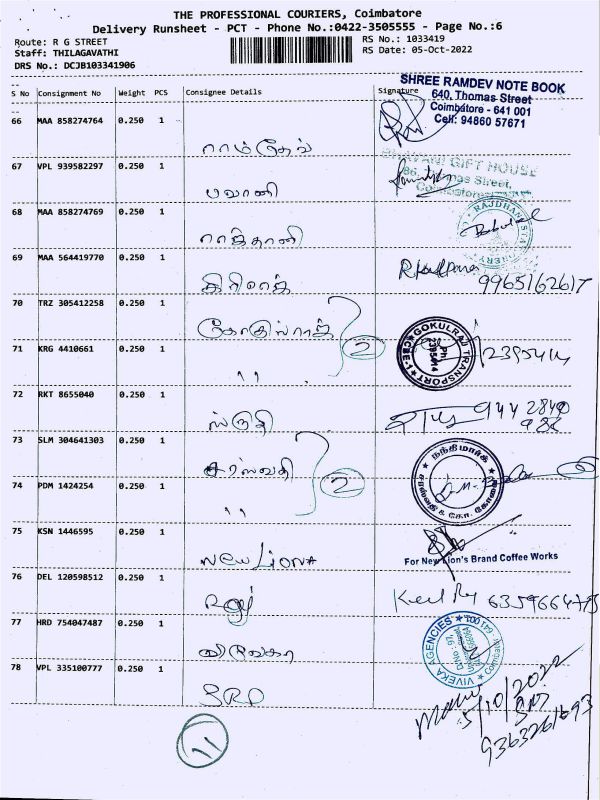 THE PROFESSIONAL COURIERS, Coimbatore
Delivery Runsheet - PCT - Phone No.:0422-3505555 - Page No.:6
Route: R G STREET
RS No.: 1033419
Staff: THILAGAVATHI
RS Date: 05-Oct-2022
DRS No.: DCJB103341906
S No Consignment No Weight PCS Consignee Details Signature
SHREE RAMDEV NOTE BOOK
640, Thomas Street
Coimbatore - 641 001
Cell: 94860 57671
66 MAA 858274764 0.250 1
ராம்தேவ்
67 VPL 939582297 0.250 1
BHAVANI GIFT HOUSE
Thomas Street,
Coimbatore
பவானி
68 MAA 858274769 0.250 1
ராஜ்தானி
69 MAA 564419770 0.250 1
கிரிராஜ்
9965162617
70 TRZ 305412258 0.250 1
கோகுல்ராஜ்
71 KRG 4410661 0.250 1
2
GOKULRAJ TRANSPORT
CBE-1
Ph: 2395414
2395414
" "
72 RKT 8655040 0.250 1
ஸ்ருதி
73 SLM 304641303 0.250 1
சரஸ்வதி
2
நந்தி மார்க்
சரஸ்வதி & கோ. கோவை
74 PDM 1424254 0.250 1
" "
75 KSN 1446595 0.250 1
New Liona
For New Lion's Brand Coffee Works
76 DEL 120598512 0.250 1
77 HRD 754047487 0.250 1
விவேகா
VIVEKA AGENCIES
78 VPL 335100777 0.250 1
SRD
5/10/2022
9363261693
11